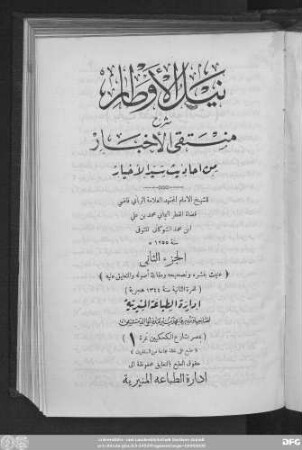 نيل الأوطار
شرح
منتقى الأخبار
من أحاديث سيد الأخيار
للشيخ الامام المجتهد العلامة الرباني قاضي
قضاة القطر اليماني محمد بن علي
ابن محمد الشوكاني المتوفى
سنة ١٢٥٥ ه
الجزء الثاني
﴿ عنيت بنشره وتصحيحه ومقابلة أصوله والتعليق عليه ﴾
( للمرة الثانية سنة ١٣٤٤ هجرية )
إدارة الطباعة المنيرية
( بمصر شارع الكحكيين نمرة ١ )
حقوق الطبع بالتعليق محفوظة الى
إدارة الطباعه المنيرية
DFG